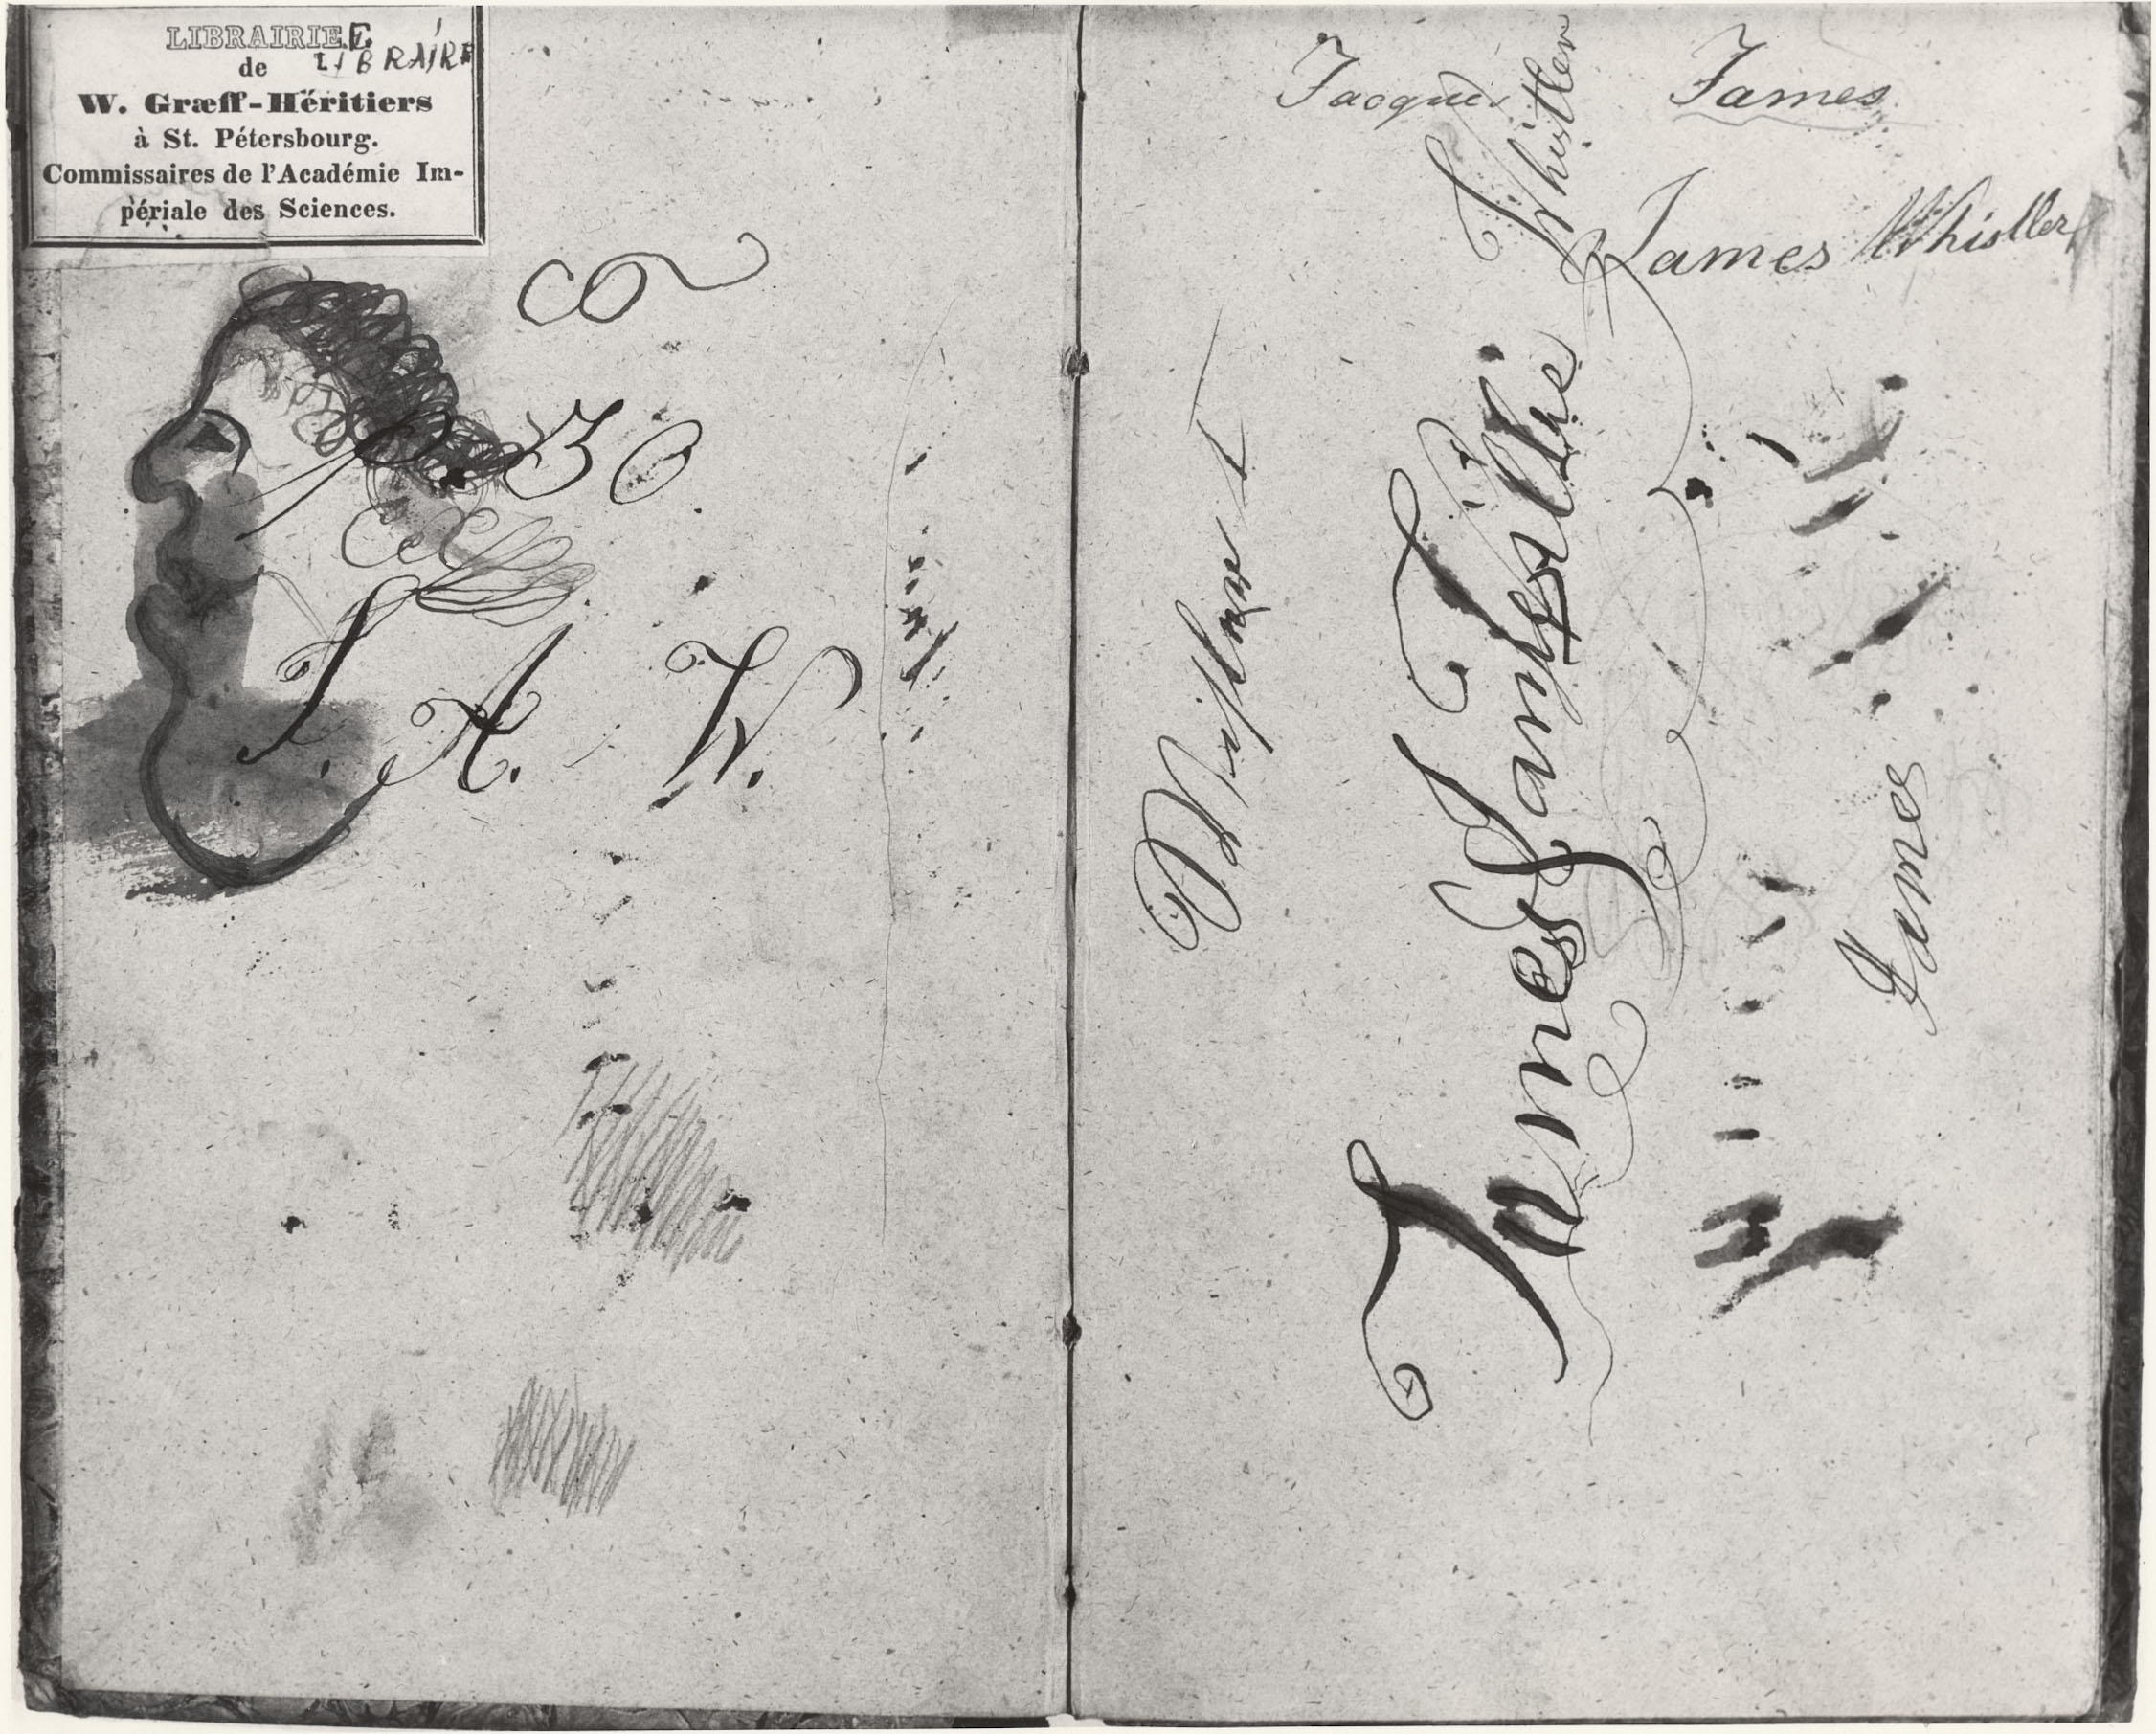 LIBRAIRIE E
de LIBRAIRE
W. Græff-Héritiers
à St. Pétersbourg.
Commissaires de l'Académie Im-
périale des Sciences.
30
J. A. W.
Jacques
James
Whistler
James Whistler
James James
James